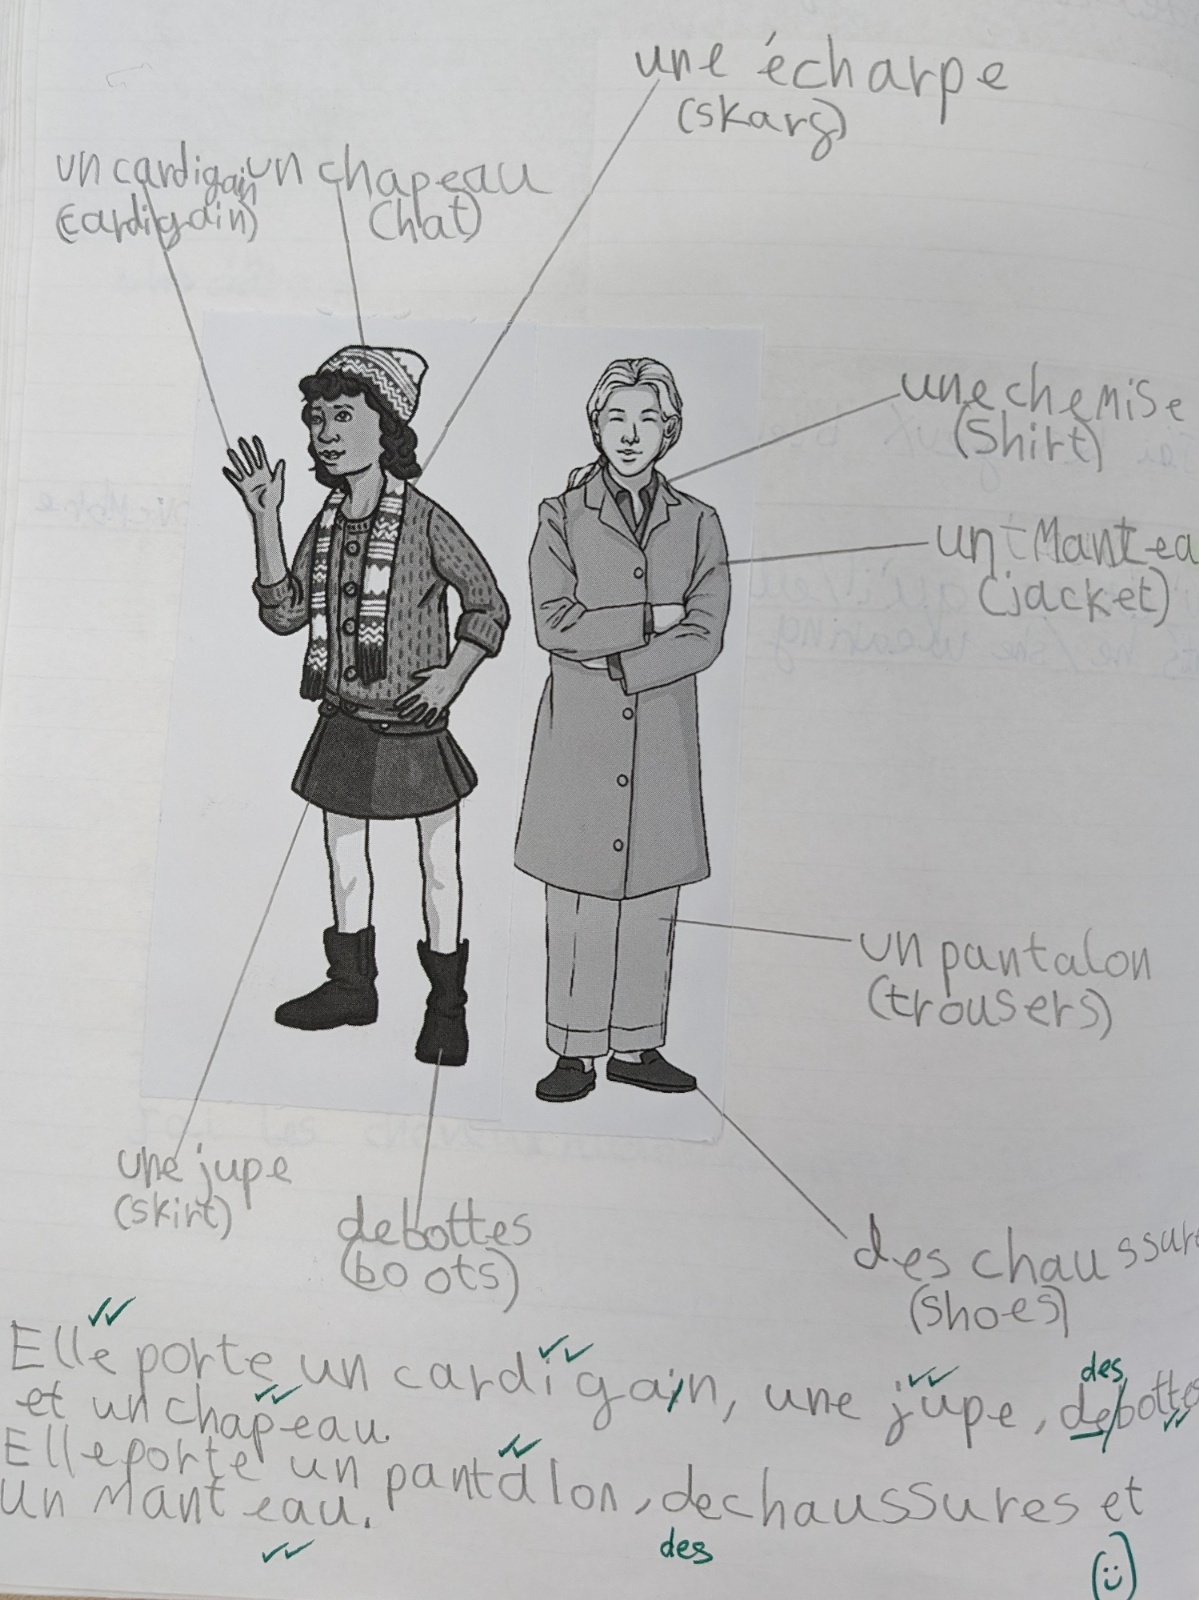 une écharpe
(skarf)
un cardigain un chapeau
(cardigain) (hat)
une chemise
(shirt)
un mantea
(jacket)
un pantalon
(trousers)
une jupe
(skirt)
de bottes
(boots)
des chaussure
(shoes)
Elle porte un cardigain, une jupe, de bottes
des
et un chapeau.
Elle porte un pantalon, de chaussures et
des
un manteau.